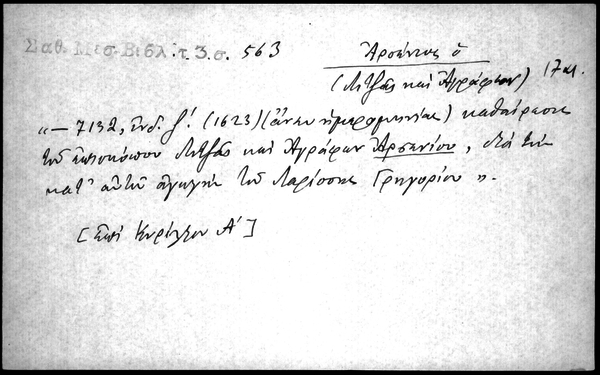 Σαθ. Μεσ. Βιβλ. τ. 3. σ. 563
Ἀρσένιος ὁ
(Λιτζᾶς καὶ Ἀγράφων) 17 αι.
«— 7132, ἰνδ. ζ´. (1623) (ἄνευ ἡμερομηνίας) καθαίρεσις
τοῦ ἐπισκόπου Λιτζᾶς καὶ Ἀγράφων Ἀρσενίου, διὰ τὴν
κατ' αὐτοῦ ἀγωγὴν τοῦ Λαρίσσης Γρηγορίου».
[ἐπὶ Κυρίλλου Α´]